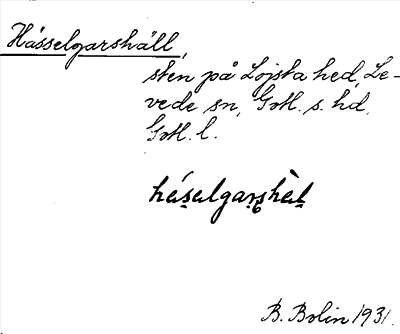 Hásselgarshàll,
sten på Lojsta hed, Le-
vede sn, Gotl. s. hd.
Gotl. l.
hásalgarshàl
B. Bolin 1931.